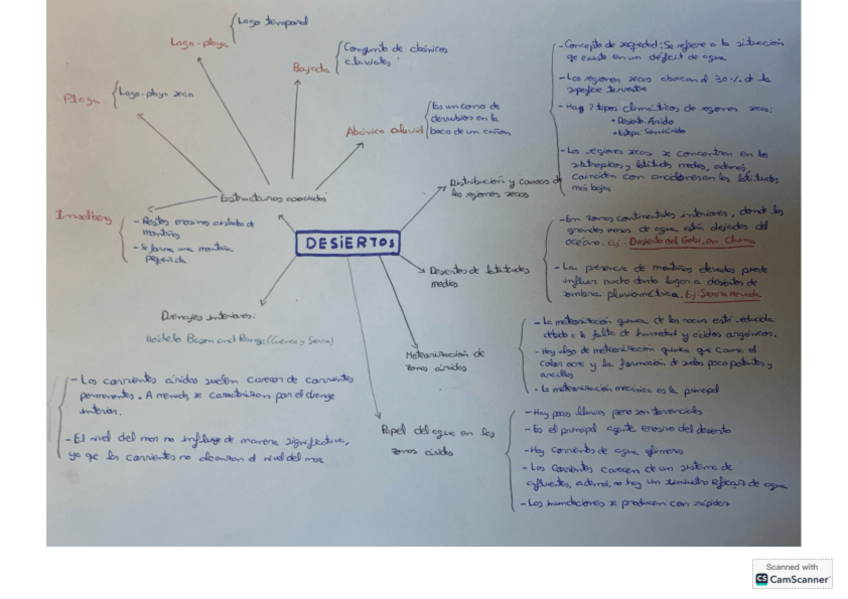 Lago temporal
Lago-playa
Conjunto de abanicos
aluviales
Bajada
Playa
Lago-playa seco
Es un cono de
derrubios en la
boca de un cañon
Abanico aluvial
Estructuras asociadas
Inselberg
- Restos erosivos aislados de
montañas
- Se forma una montaña
pequeñita
DESIERTOS
Drenajes interiores:
Modelo Basin and Range (Cuenca y Sierra)
- Las corrientes áridas suelen carecer de corrientes
permanentes. A menudo, se caracterizan por el drenaje
interior.
- El nivel del mar no influye de manera significativa,
ya que las corrientes no alcanzan el nivel del mar
Distribución y causas de
las regiones secas
- Concepto de sequedad: Se refiere a la situación
que existe en un déficit de agua
- Las regiones secas abarcan el 30% de la
superficie terrestre
- Hay 2 tipos climáticos de regiones secas:
• Desierto: Árido
• Estepa: Semiárido
- Las regiones secas se concentran en los
subtropicos y latitudes medias, además,
coinciden con en las latitudes
más bajas
Desiertos de latitudes
medias
- En zonas continentales interiores, donde las
grandes masas de agua están alejadas del
océano. Ej: Desierto del Gobi, en China
- La presencia de montañas elevadas puede
influir mucho dando lugar a desiertos de
sombra pluviométrica. Ej: Sierra Nevada
Meteorización de
zonas áridas
- La meteorización química de las rocas está reducida
debido a la falta de humedad y ácidos orgánicos.
- Hay algo de meteorización química que causa el
color ocre y la formación de suelos poco potentes, y
arcillas
- La meteorización mecánica es la principal
Papel del agua en las
zonas áridas
- Hay pocas lluvias pero son torrenciales
- Es el principal agente erosivo del desierto
- Hay corrientes de agua efímeras
- Las corrientes carecen de un sistema de
afluentes, además, no hay un suministro eficaz de agua
- Las inundaciones se producen con rápidez
Scanned with
CS CamScanner